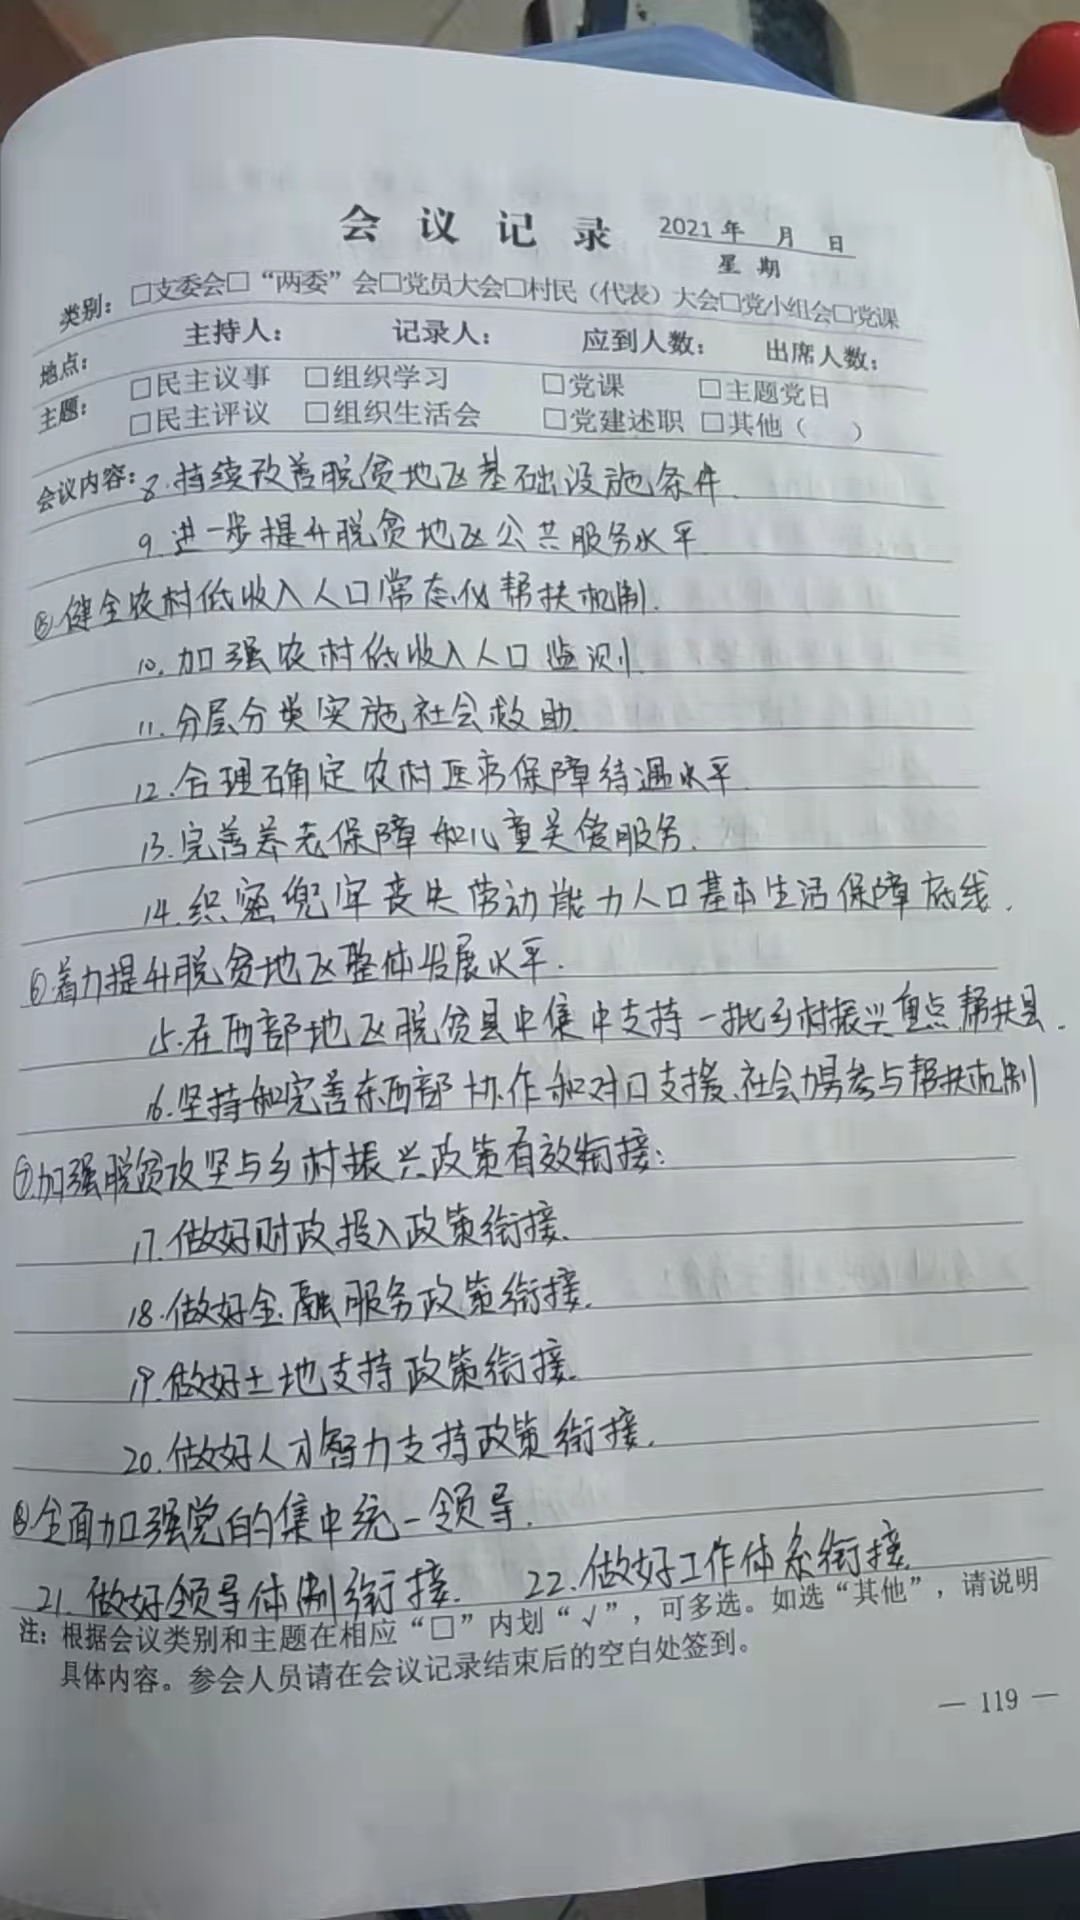 会议记录 2021年 月 日
星期
类别：□支委会□“两委”会□党员大会□村民（代表）大会□党小组会□党课
地点： 主持人： 记录人： 应到人数： 出席人数：
主题： □民主议事 □组织学习 □党课 □主题党日
□民主评议 □组织生活会 □党建述职 □其他（ ）
会议内容：8.持续改善脱贫地区基础设施条件.
9.进一步提升脱贫地区公共服务水平
⑤.健全农村低收入人口常态化帮扶机制.
10.加强农村低收入人口监测.
11.分层分类实施社会救助.
12.合理确定农村医疗保障待遇水平.
13.完善养老保障和儿童关爱服务.
14.织密兜牢丧失劳动能力人口基本生活保障底线.
⑥着力提升脱贫地区整体发展水平.
15.在西部地区脱贫县中集中支持一批乡村振兴重点帮扶县.
16.坚持和完善东西部协作和对口支援、社会力量参与帮扶机制
⑦.加强脱贫攻坚与乡村振兴政策有效衔接：
17.做好财政投入政策衔接.
18.做好金融服务政策衔接.
19.做好土地支持政策衔接.
20.做好人才智力支持政策衔接.
⑧全面加强党的集中统一领导.
21.做好领导体制衔接. 22.做好工作体系衔接.
注：根据会议类别和主题在相应“□”内划“√”，可多选。如选“其他”，请说明
具体内容。参会人员请在会议记录结束后的空白处签到。
— 119 —